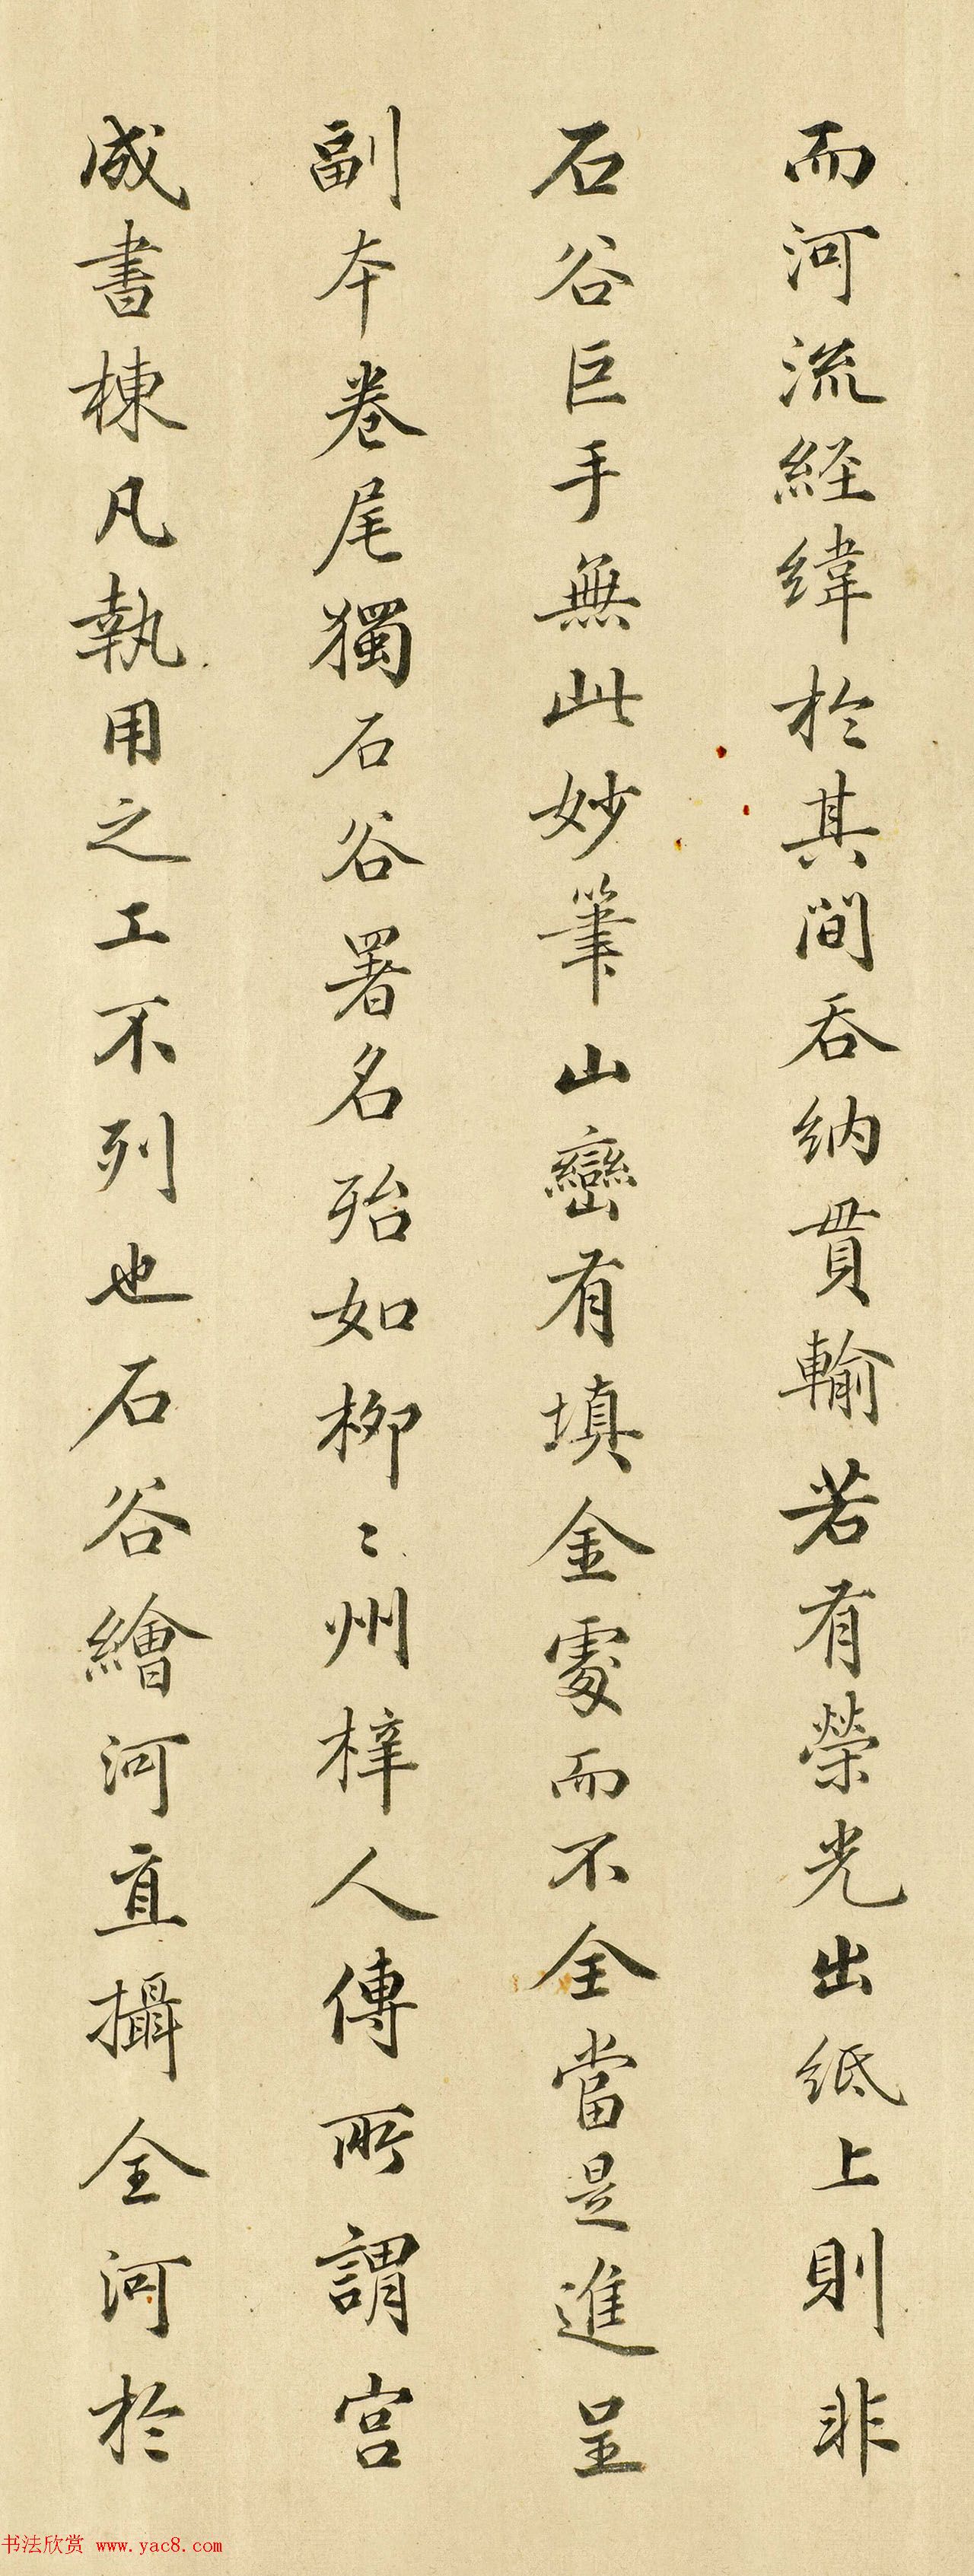 而河流經緯於其間吞納貫輸若有榮光出紙上則非
石谷巨手無此妙筆山巒有填金處而不全當是進呈
副本卷尾獨石谷署名殆如柳〻州梓人傳所謂宮
成書棟凡執用之工不列也石谷繪河直攝全河於
书法欣赏 www.yac8.com